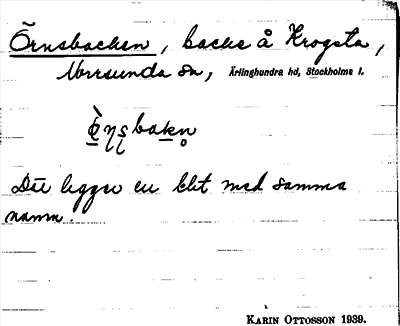 Örnsbacken, backe å Krogsta,
Norrsunda sn, Ärlinghundra hd, Stockholms l.
Där ligger en litet med samma
namn.
KARIN OTTOSSON 1939.